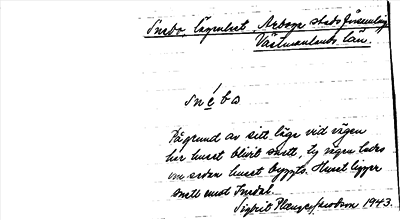 Snebo lägenhet Arboga stadsförsamling
Västmanlands län.
Snébo
På grund av sitt läge vid vägen
har huset blivit snett, ty vägen lades
om sedan huset byggts. Huset ligger
snett emot
Sigbrit Plænge Jacobson 1943.